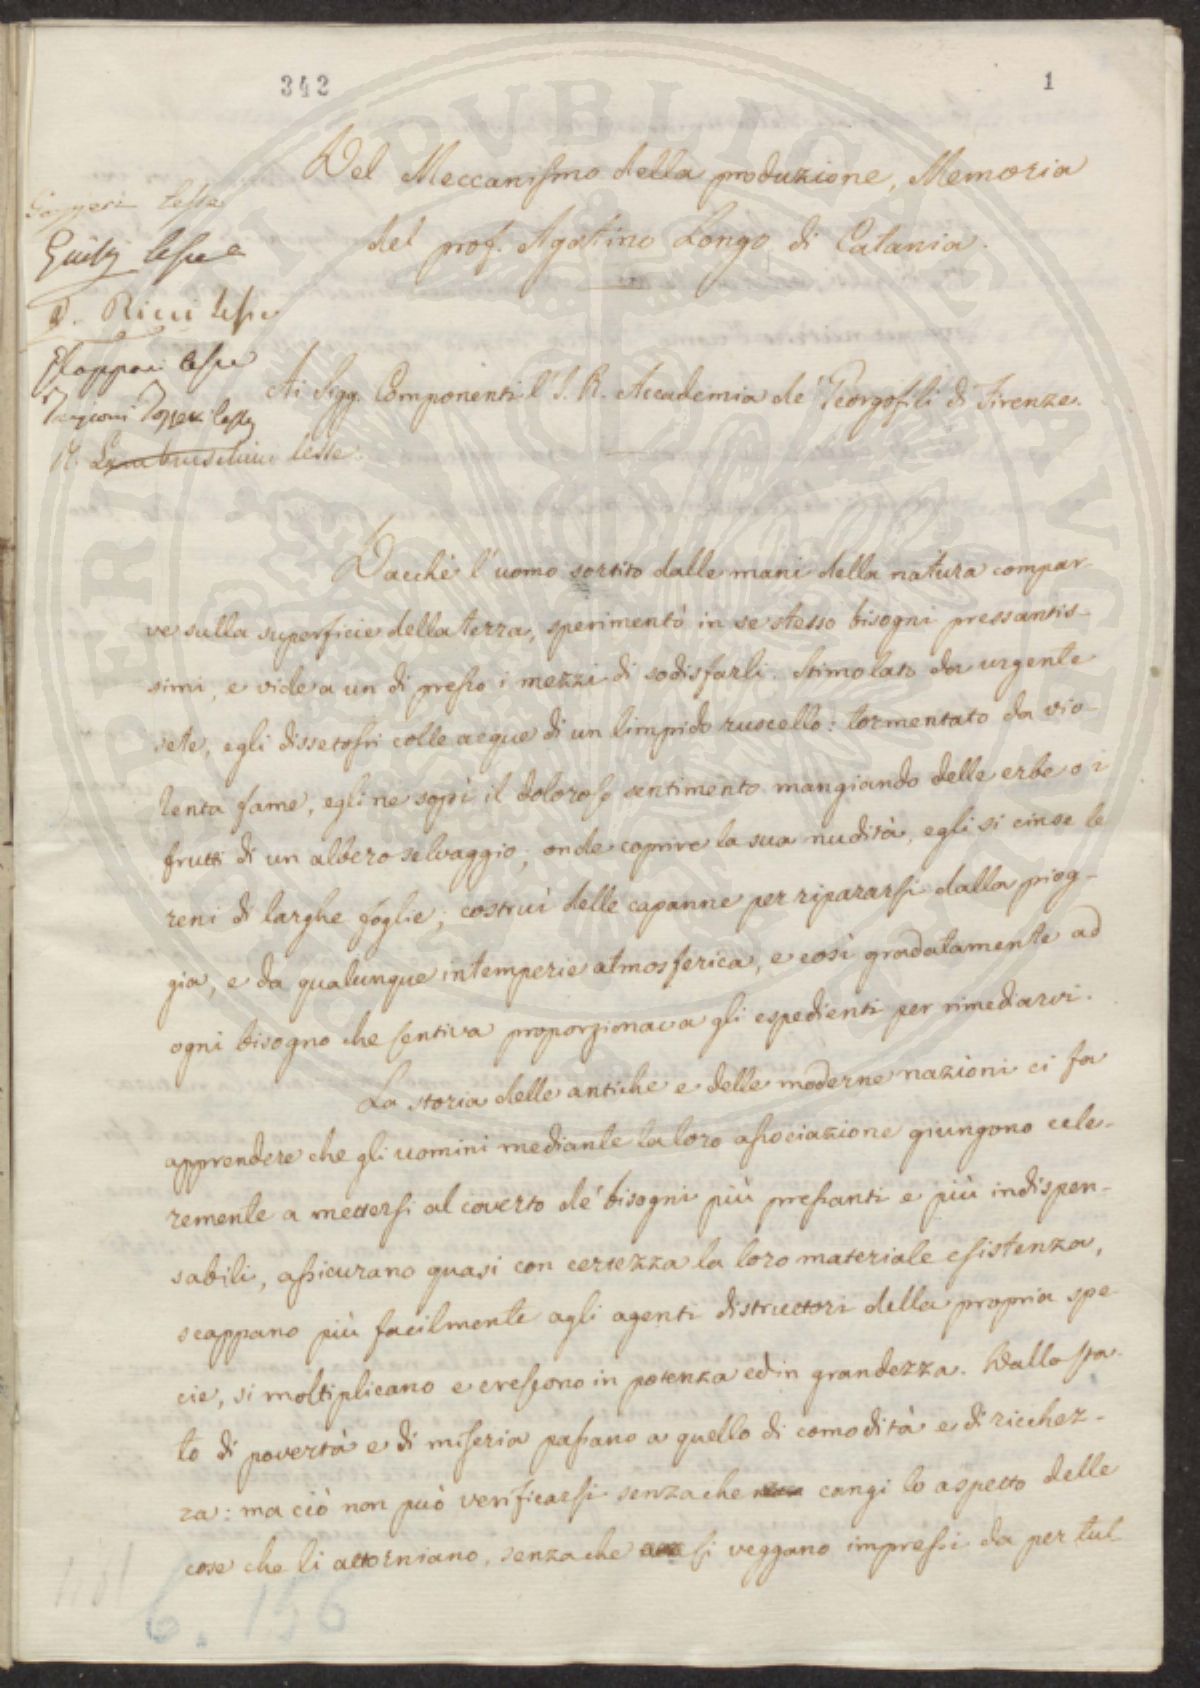 342
1
Del Meccanismo della produzione, Memoria
del prof. Agostino Longo di Catania.
lesse
lesse
Ricci lesse
lesse
lesse
R. Lambruschini lesse.
Ai Sigg. Componenti l'I. R. Accademia de' Georgofili di Firenze.
Dacchè l'uomo sortito dalle mani della natura compar-
ve sulla superficie della terra, sperimentò in se stesso bisogni pressantis-
simi, e vide a un di presso i mezzi di sodisfarli. Stimolato da urgente
sete, egli dissetossi colle acque di un limpido ruscello: tormentato da vio-
lenta fame, egli ne sopì il doloroso sentimento mangiando delle erbe o i
frutti di un albero selvaggio; onde coprire la sua nudità, egli si cinse le
reni di larghe foglie; costruì delle capanne per ripararsi dalla piog-
gia, e da qualunque intemperie atmosferica, e così gradatamente ad
ogni bisogno che sentiva proporzionava gli espedienti per rimediarvi.
La storia delle antiche e delle moderne nazioni ci fa
apprendere che gli uomini mediante la loro associazione giungono cele-
remente a mettersi al coverto de' bisogni più pressanti e più indispen-
sabili, assicurano quasi con certezza la loro materiale esistenza,
scappano più facilmente agli agenti distruttori della propria spe-
cie, si moltiplicano e crescono in potenza ed in grandezza. Dallo sta-
to di povertà e di miseria passano a quello di comodità e di ricchez-
za: ma ciò non può verificarsi senza che cangi lo aspetto delle
cose che li attorniano, senza che si veggano impressi da per tut-
6. 156